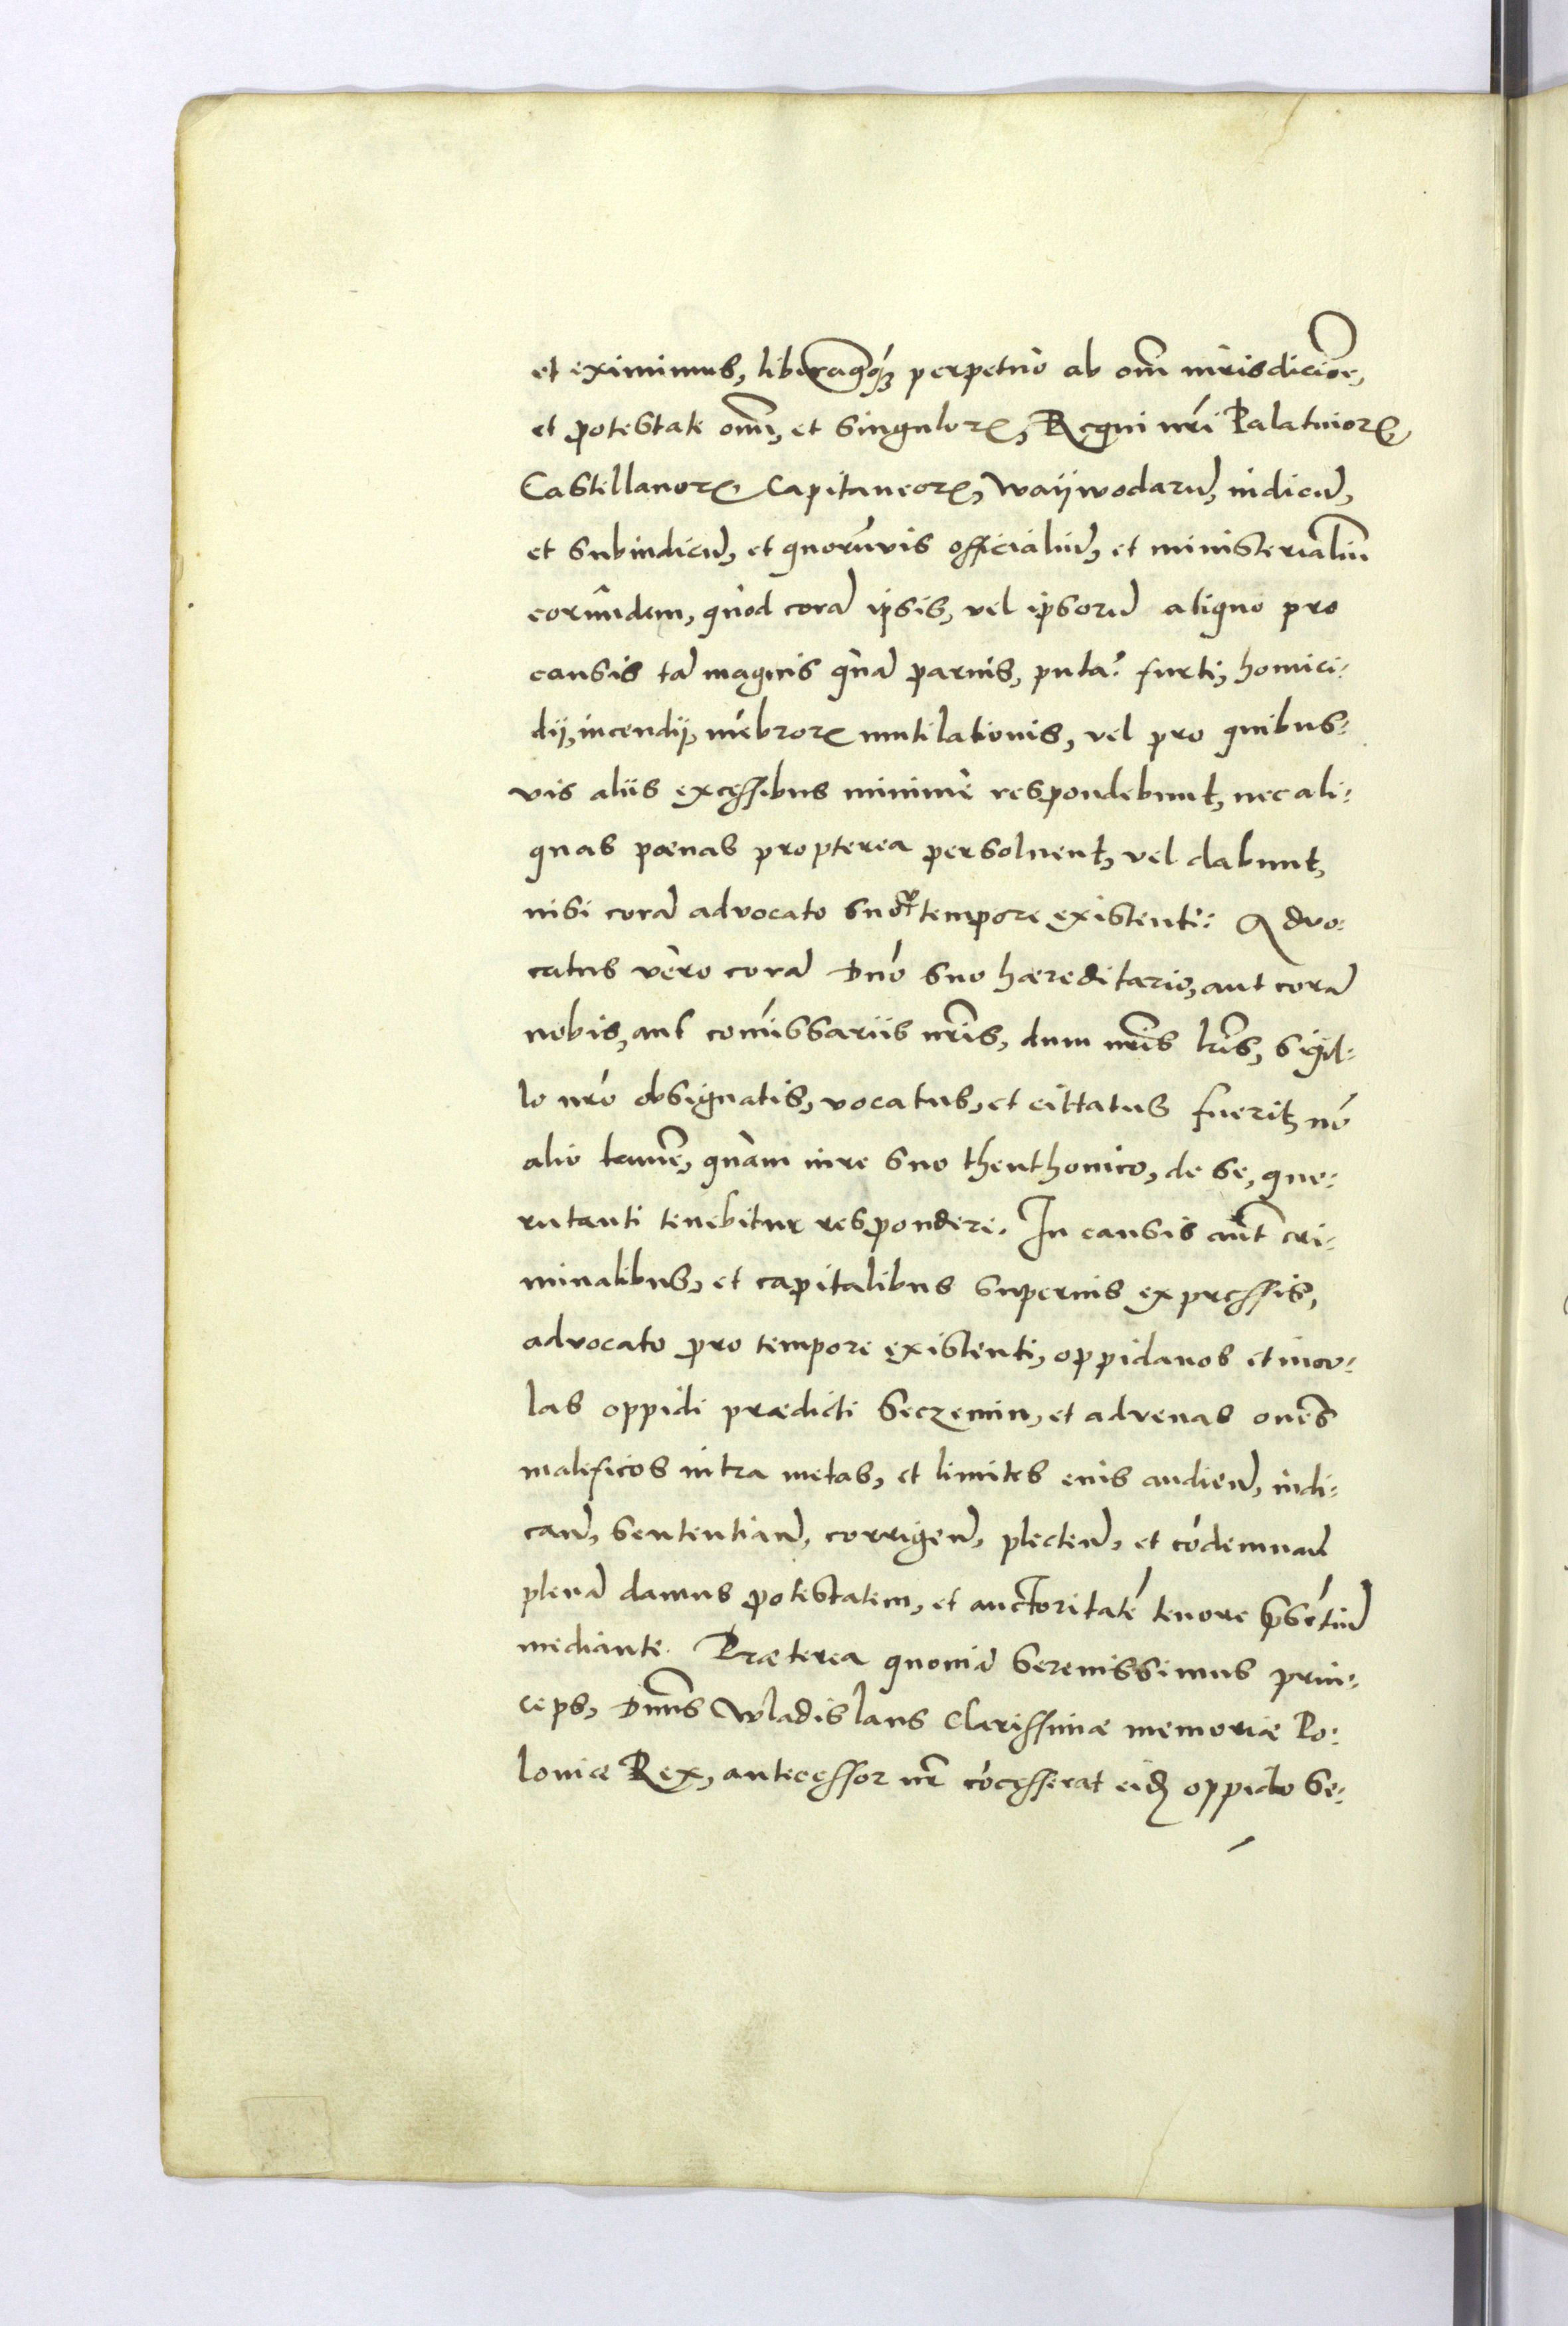 et eximimus, liberamꝙꝫ perpetuò ab om̄i iurisdicioē,
et potestate om̄i, et singulorꝝ, Regni nr̄i Palatinorꝝ,
Castellanorꝝ Capitaneorꝝ, Waijwodarū, iudicū,
et subiudicū, et quorūvis officialiū, et ministerialiū
eorūmdem, quod corā ipsis, vel ipsorū aliquo pro
causis tā magnis quā parvis, puta: furti, homici:
dij, incendij, mēbrorꝝ mutilationis, vel pro quibus:
vis aliis excessibus minime respondebunt, nec ali:
quas pœnas propterea persolvent, vel dabunt,
nisi corā advocato suo ꝓ tempore existenti: Advo:
catus vero corā Dn̄o suo hæreditario, aut corā
nobis, aut com̄issariis nr̄is, dum nr̄is lr̄is, sigil:
lo nr̄o obsignatis, vocatus, et cittatus fuerit, nō
alio tamē, quàm iure suo theuthonico, de se, que:
rutanti tenebitur respondere. In causis aut̄ cri:
minalibus, et capitalibus superius expressis,
advocato pro tempore existenti, oppidanos et inco:
las oppidi prædicti Seczemin, et advenas om̄es
maleficos intra metas, et limites eius audiend̄, iudi:
cand̄, sententiand̄, corrigend̄, plectend̄, et cōdemnand̄
plenā damus potestatem, et auctoritatē tenore p̄sētiū
mediante. Præterea quoniā Serenissimus prin:
ceps, Dn̄us Wladislaus Clarissimæ memoriæ Po:
loniæ Rex, antecessor nr̄ cōcesserat eidꝫ oppido Se: